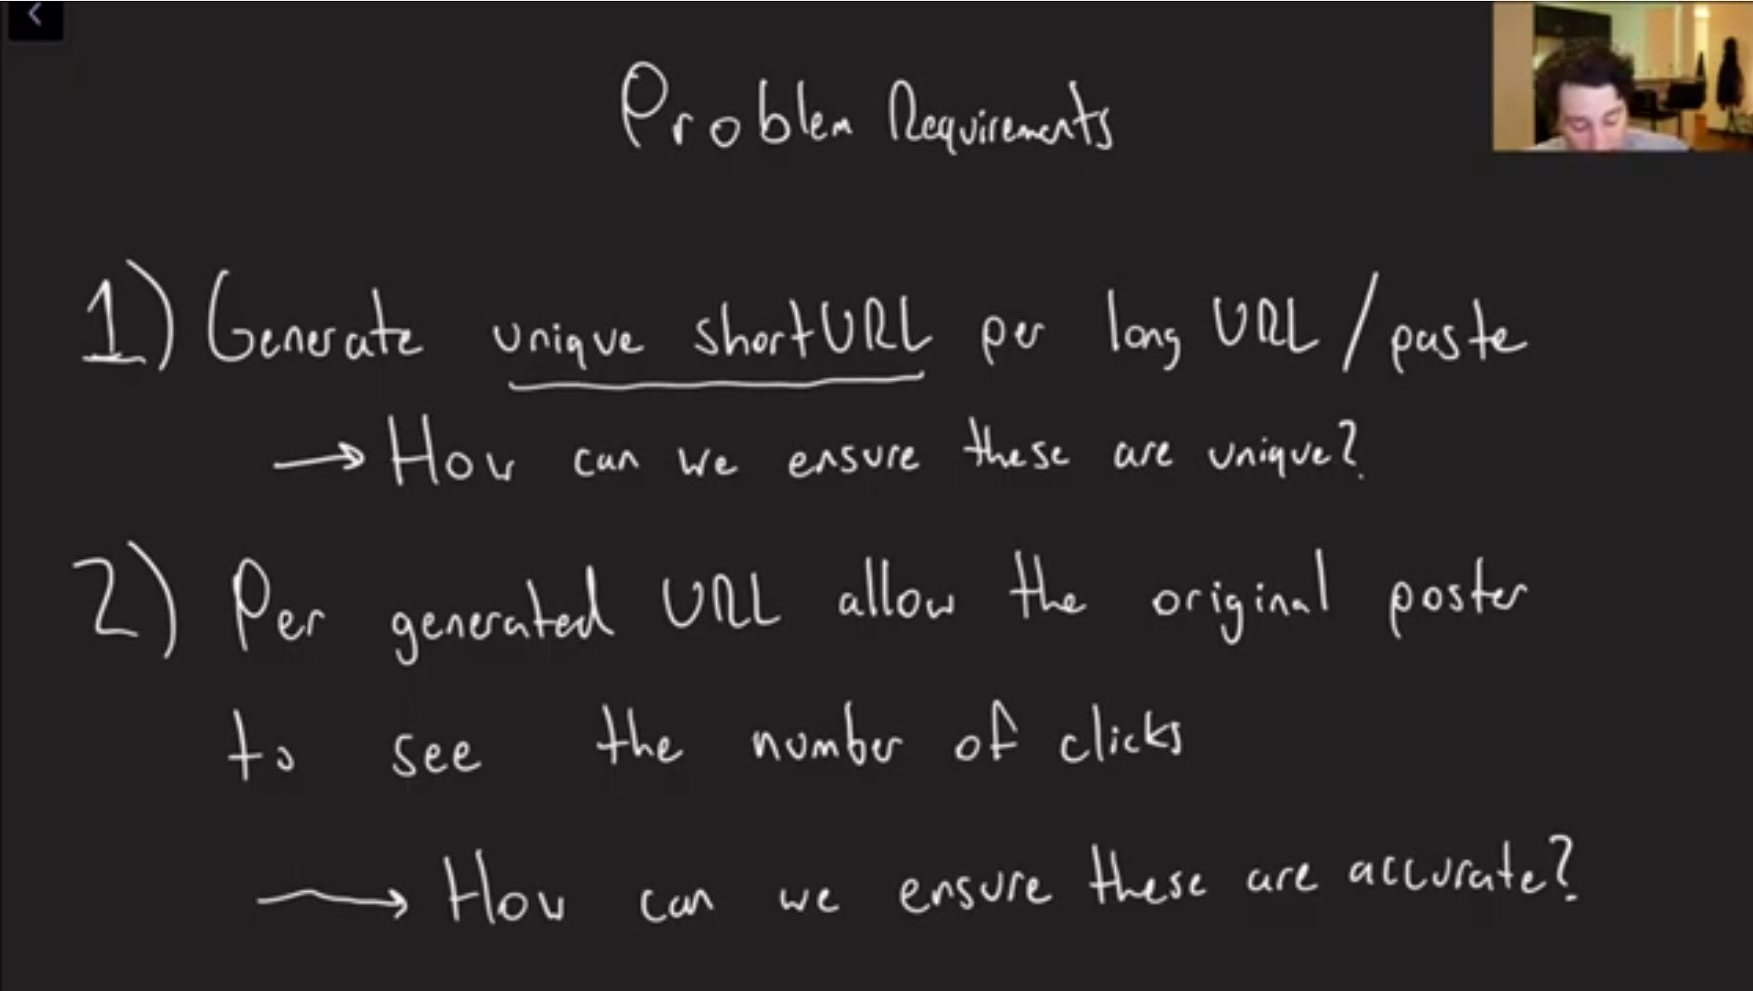 Problem Requirements
1) Generate unique shortURL per long URL / paste
→ How can we ensure these are unique?
2) Per generated URL allow the original poster
to see the number of clicks
→ How can we ensure these are accurate?